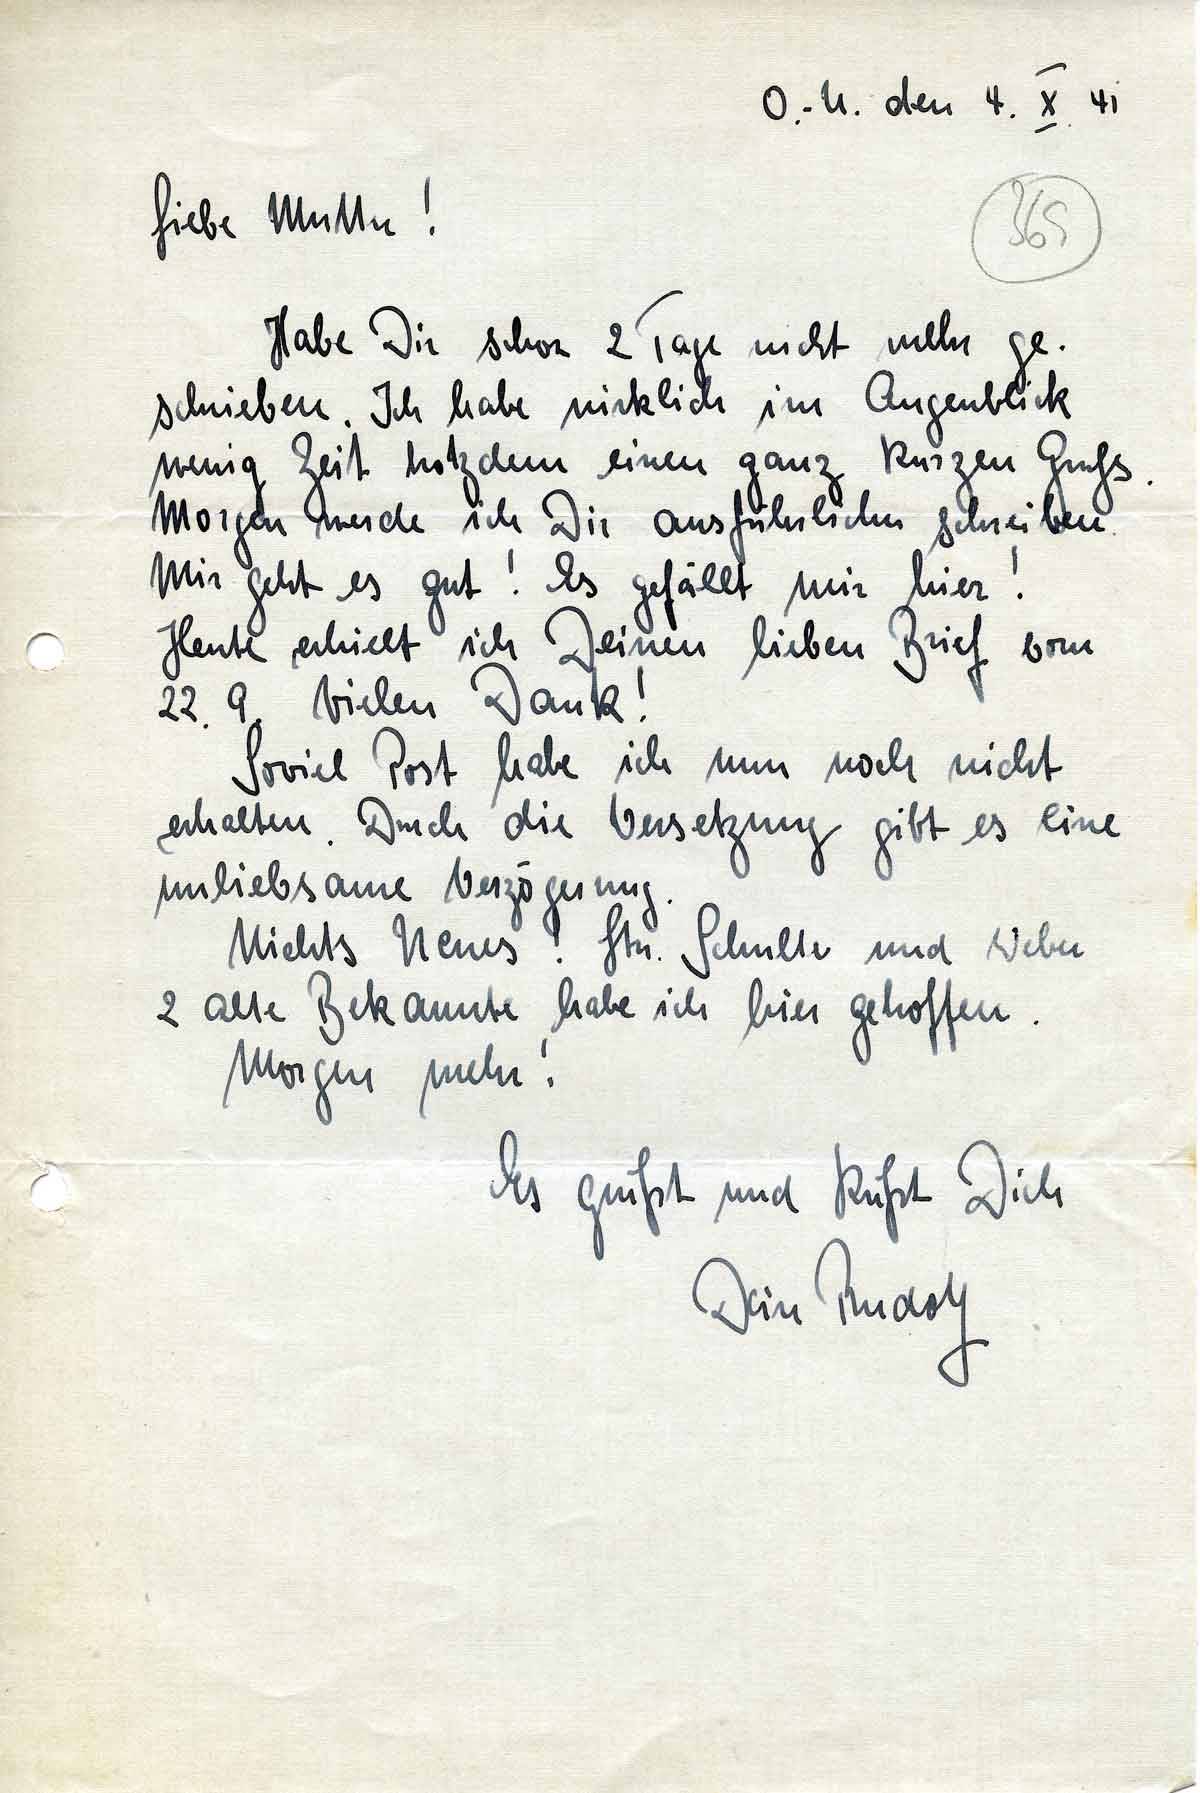 O.-U. den 4. X. 41
Liebe Mutter!
365
Habe Dir schon 2 Tage nicht mehr ge-
schrieben. Ich habe wirklich im Augenblick
wenig Zeit trotzdem einen ganz kurzen Gruß.
Morgen werde ich Dir ausführlicher schreiben.
Mir geht es gut! Es gefällt mir hier!
Heute erhielt ich Deinen lieben Brief vom
22. 9. Vielen Dank!
Soviel Post habe ich nun noch nicht
erhalten. Durch die Versetzung gibt es eine
unliebsame Verzögerung.
Nichts Neues! Schulte und Weber
2 alte Bekannte habe ich hier getroffen.
Morgen mehr!
Es grüßt und küßt Dich
Dein Rudolf